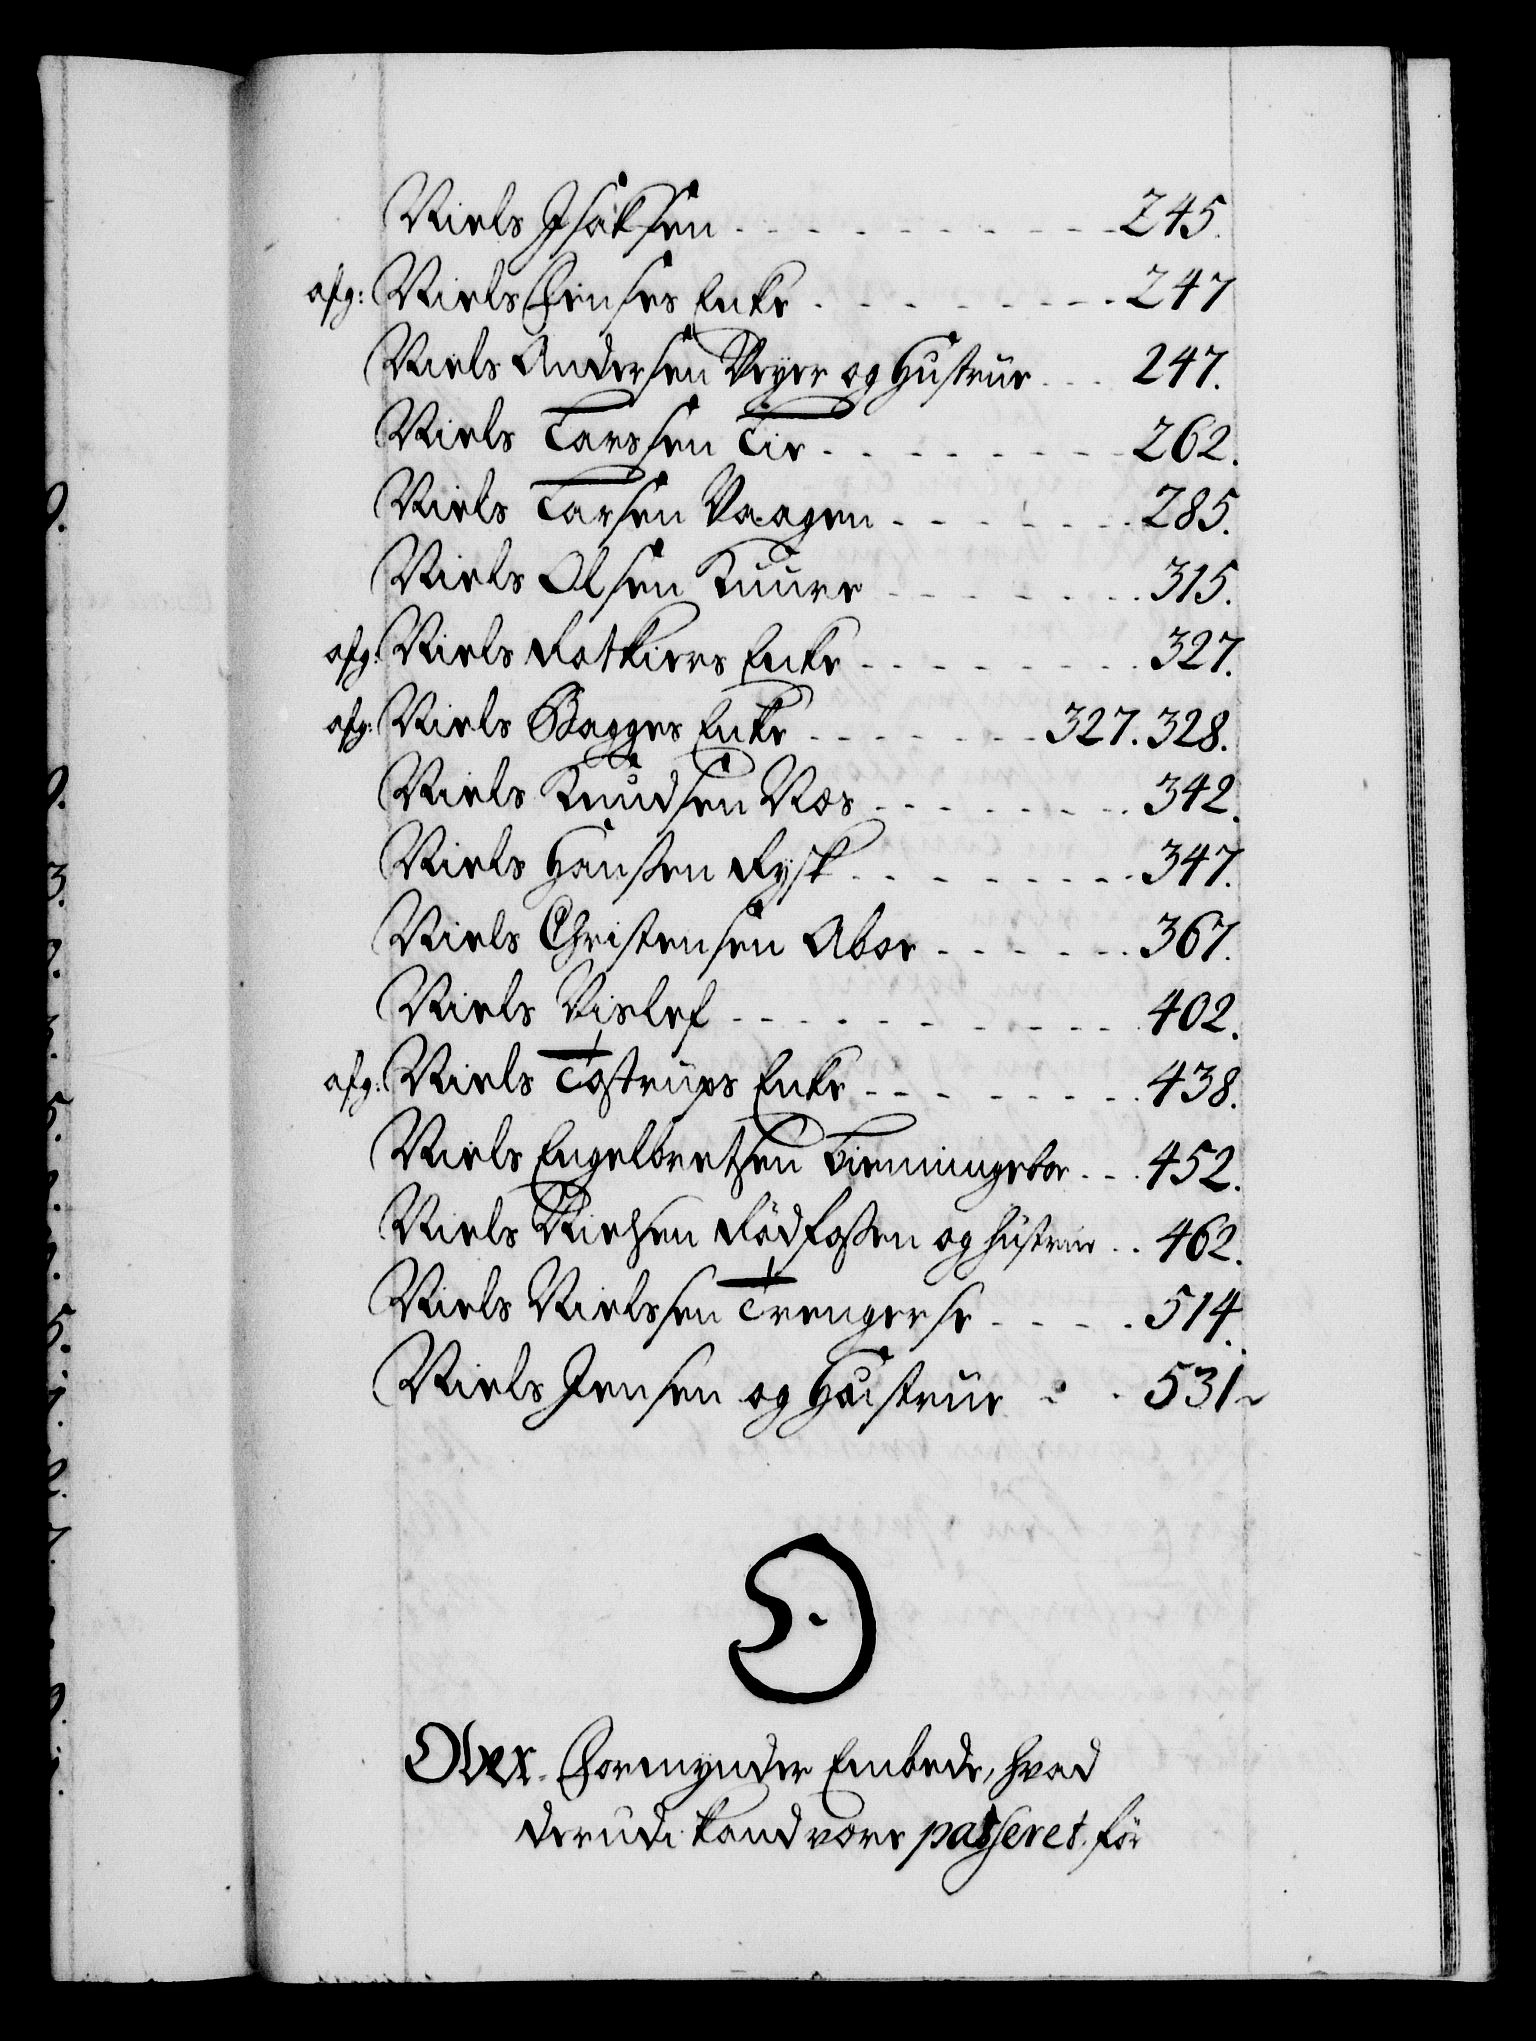 Niels Isaksen - - - - - - - - - 245.
afg: Niels Jenses Enke - - - - - - - 247
Niels Andersen Veyer og Hustrue - - 247.
Niels Larssen Lie - - - - - - - - 262.
Niels Larsen Vaagen - - - - - - 285.
Niels Olsen Kuure - - - - - - 315.
afg: Niels Fotkiers Enke - - - - - - 327.
afg: Niels Bagges Enke - - - - - 327. 328.
Niels Knudsen Næs - - - - - - 342.
Niels Hanssen Fysk - - - - - - 347.
Niels Christensen Aboe - - - - - 367.
Niels Vislef - - - - - - - - 402.
afg: Niels Tostrups Enke - - - - - - 438.
Niels Engelbretsen - - 452.
Niels Nielsen Fødfossen og hustrue - - 462.
Niels Nielssen Trengerse - - - - 514.
Niels Jensen og Hustrue - - 531
O.
Over-Formynder Embede, hvad
derudi kand være passeret. før